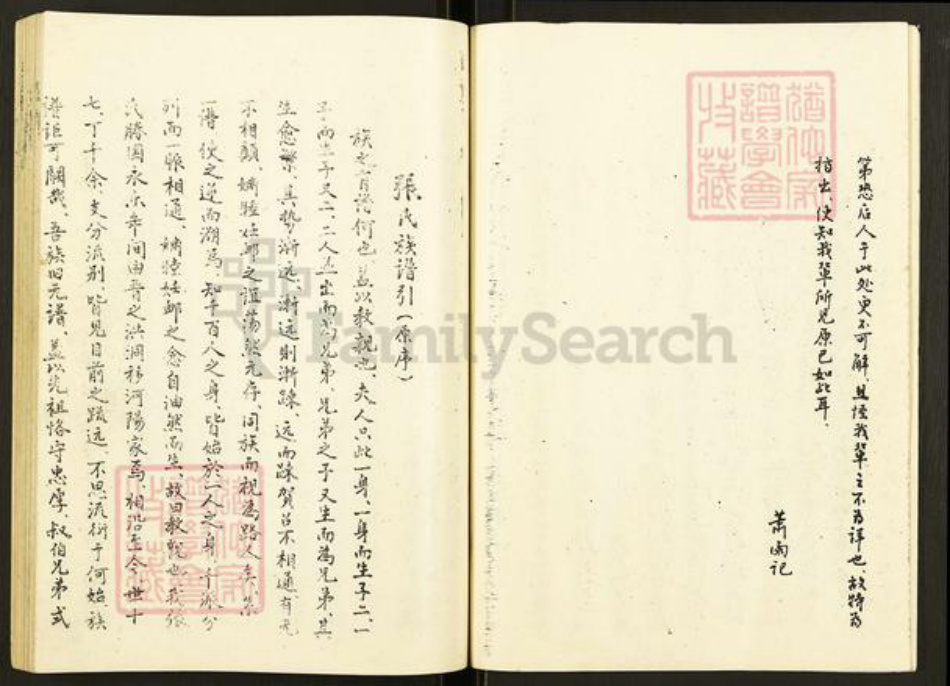 第恐后人于此处更不可解、且怪我辈之不为详也、故特为
指出、使知我辈所见原已如此耳、
萧雨记
張氏族谱引（原序）
族之有谱何也、盖以教親也、夫人只此一身、一身而生子二、一
子而生子又二、二人并出而为兄弟、兄弟之子又生而為兄弟、其
生愈繁、其势渐远、渐远則渐踈、远而踈贺吊不相通、有无
不相顧、婣睦任卹之谊荡然无存、同族而視為路人矣、
一谱、使之逆而溯焉、知千百人之身、皆始於一人之身、千派分
列而一脉相通、婣睦任卹之愈自油然而生、故曰教親也、我張
氏勝国永乐年间由晋之洪洞移河陽家焉、相沿至今、世十
七、丁千余、支分派别、皆見目前之疏远、不思流衍于何始、族
谱讵可闕哉、吾族旧无譜、盖以先祖恪守忠厚、叔伯兄弟式
猶他家譜學會收藏
猶他家譜學會收藏
FamilySearch